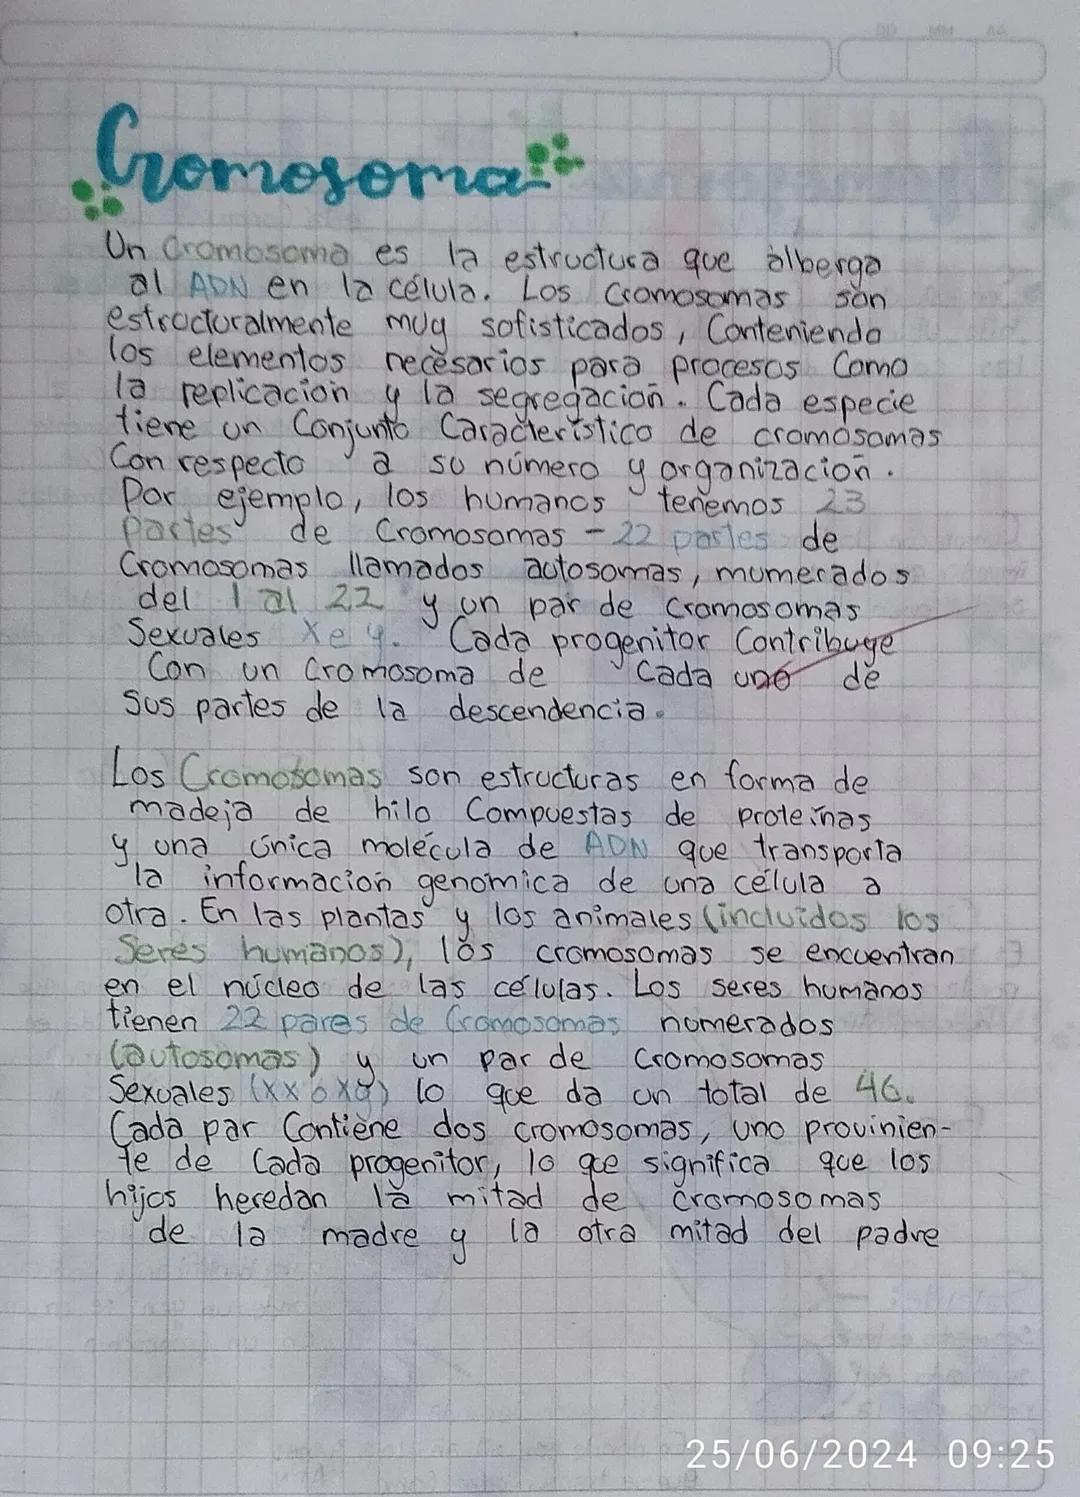 Cromosoma
Un Cromosoma es la estructura que alberga
al ADN en la célula. Los Cromosomas son
estructuralmente muy sofisticados, Conteniendo
los elementos necesarios para procesos Como
la replicación y la segregación. Cada especie
tiene un Conjunto Característico de cromosomas
Con respecto a su número y organización.
Por ejemplo, los humanos tenemos 23
partes de Cromosomas - 22 partes de
Cromosomas llamados autosomas, mumerados
del 1 al 22 y un par de cromosomas
Sexuales X e y. Cada progenitor Contribuye
Con un Cromosoma de Cada uno de
Sus partes de la descendencia.
Los Cromosomas son estructuras en forma de
madeja de hilo Compuestas de proteínas
y una única molécula de ADN que transporta
la información genómica de una célula a
otra. En las plantas y los animales (incluidos los
Seres humanos), los cromosomas se encuentran
en el núcleo de las células. Los seres humanos
tienen 22 pares de Cromosomas numerados
(autosomas) y un par de Cromosomas
Sexuales (XX o Xy) lo que da un total de 46.
Cada par Contiene dos cromosomas, uno provinien-
te de Cada progenitor, lo qe significa que los
hijos heredan la mitad de cromosomas
de la madre y la otra mitad del padre
25/06/2024 09:25